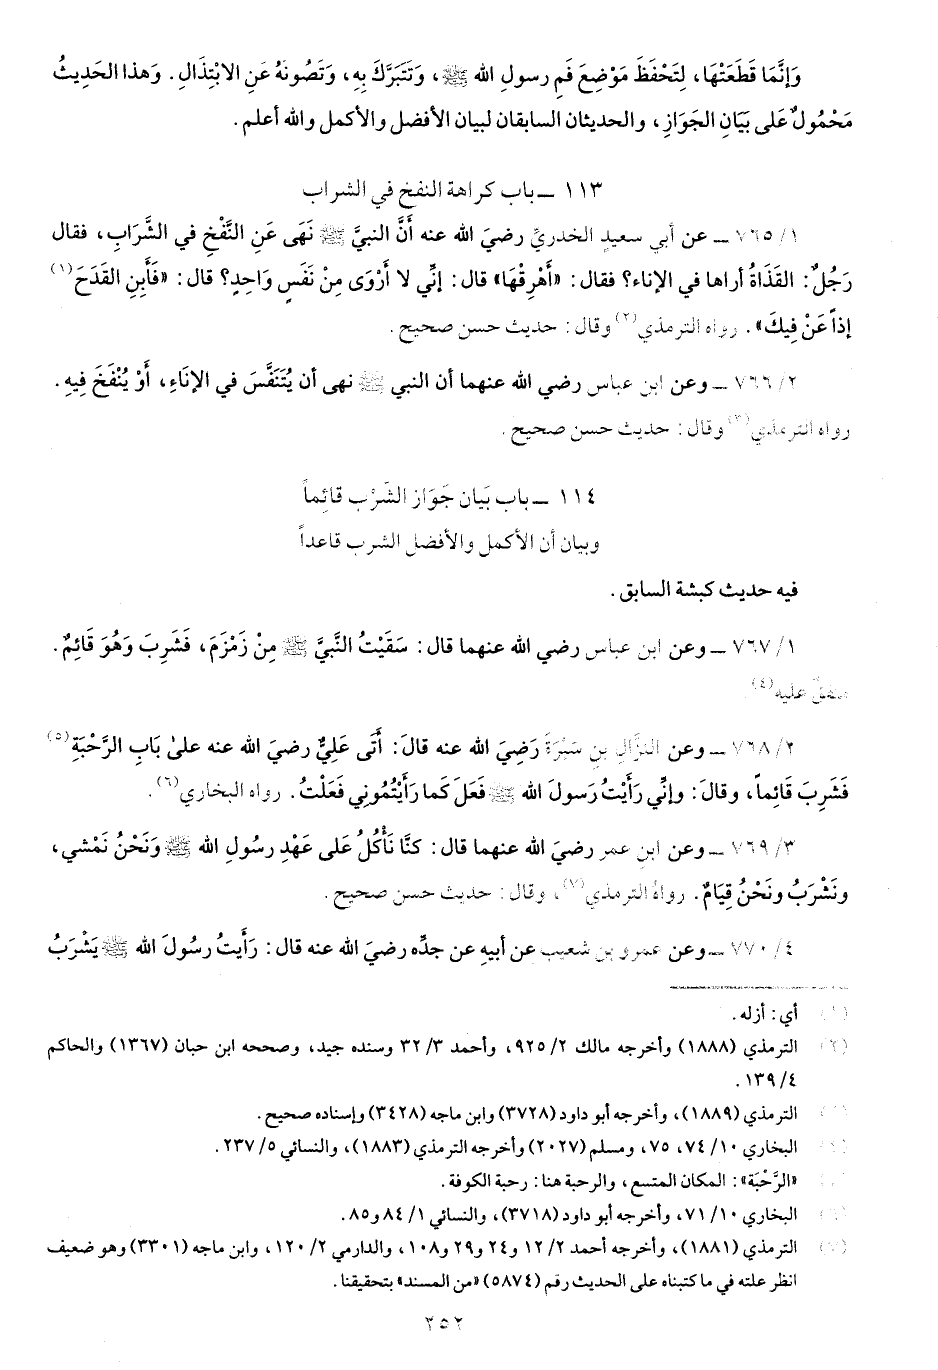 وَإنَّمَا قَطَعَتْهَا، لِتَحْفَظَ مَوْضِعَ فَمِ رسولِ الله ﷺ، وَتَتَبَرَّكَ بِهِ، وَتَصُونَهُ عَنِ الابْتِذَالِ. وَهذا الحَدِيثُ
مَحْمُولٌ عَلى بَيَانِ الجَوَازِ، والحديثان السابقان لبيان الأفضل والأكمل والله أعلم.
١١٣ ــ باب كراهة النفخ في الشراب
٧٦٥/١ ــ عن أبي سعيدٍ الخدريِّ رضيَ الله عنه أَنَّ النبيَّ ﷺ نَهَى عَنِ النَّفْخِ في الشَّرَابِ، فقال
رَجُلٌ: القَذَاةُ أراها في الإناء؟ فقال: «أَهْرِقْهَا» قال: إنِّي لا أَرْوَى مِنْ نَفَسٍ وَاحِدٍ؟ قال: «فَأَبِنِ القَدَحَ(١)
إذاً عَنْ فِيكَ». رواه الترمذي(٢) وقال: حديث حسن صحيح.
٧٦٦/٢ ــ وعن ابن عباس رضي الله عنهما أن النبي ﷺ نهى أن يُتَنَفَّسَ في الإنَاءِ، أَوْ يُنْفَخَ فِيهِ.
رواه الترمذي(٣) وقال: حديث حسن صحيح.
١١٤ ــ باب بَيَان جَوَاز الشَّرْب قائِماً
وبيان أن الأكمل والأفضل الشرب قاعداً
فيه حديث كبشة السابق.
٧٦٧/١ ــ وعن ابن عباس رضي الله عنهما قال: سَقَيْتُ النَّبيَّ ﷺ مِنْ زَمْزَمَ، فَشَرِبَ وَهُوَ قَائِمٌ.
متفقٌ عليه(٤).
٧٦٨/٢ ــ وعن النزَّالِ بنِ سَبْرَةَ رَضِيَ الله عنه قالَ: أَتَى عَلِيٌّ رضيَ الله عنه علىٰ بَابِ الرَّحْبَةِ(٥)
فَشَرِبَ قَائِماً، وقالَ: وإنِّي رَأَيْتُ رَسولَ الله ﷺ فَعَلَ كَما رَأَيْتُمُوني فَعَلْتُ. رواه البخاري(٦).
٧٦٩/٣ ــ وعن ابنِ عمر رضيَ الله عنهما قال: كنَّا نَأْكُلُ عَلى عَهْدِ رسُولِ الله ﷺ وَنَحْنُ نَمْشي،
ونَشْرَبُ ونَحْنُ قِيَامٌ. رواهُ الترمذي(٧)، وقال: حديث حسن صحيح.
٧٧٠/٤ ــ وعن عمرو بن شعيب عن أبيهِ عن جدِّه رضيَ الله عنه قال: رَأَيتُ رسُولَ الله ﷺ يَشْرَبُ
(١) أي: أزله.
(٢) الترمذي (١٨٨٨) وأخرجه مالك ٩٢٥/٢، وأحمد ٣٢/٣ وسنده جيد، وصححه ابن حبان (١٣٦٧) والحاكم
١٣٩/٤.
(٣) الترمذي (١٨٨٩)، وأخرجه أبو داود (٣٧٢٨) وابن ماجه (٣٤٢٨) وإسناده صحيح.
(٤) البخاري ٧٤/١٠، ٧٥، ومسلم (٢٠٢٧) وأخرجه الترمذي (١٨٨٣)، والنسائي ٢٣٧/٥.
(٥) «الرَّحْبَة»: المكان المتسع، والرحبة هنا: رحبة الكوفة.
(٦) البخاري ٧١/١٠، وأخرجه أبو داود (٣٧١٨)، والنسائي ٨٤/١ و٨٥.
(٧) الترمذي (١٨٨١)، وأخرجه أحمد ١٢/٢ و٢٤ و٢٩ و١٠٨، والدارمي ١٢٠/٢، وابن ماجه (٣٣٠١) وهو ضعيف
انظر علته في ما كتبناه على الحديث رقم (٥٨٧٤) «من المسند» بتحقيقنا.
٢٥٢